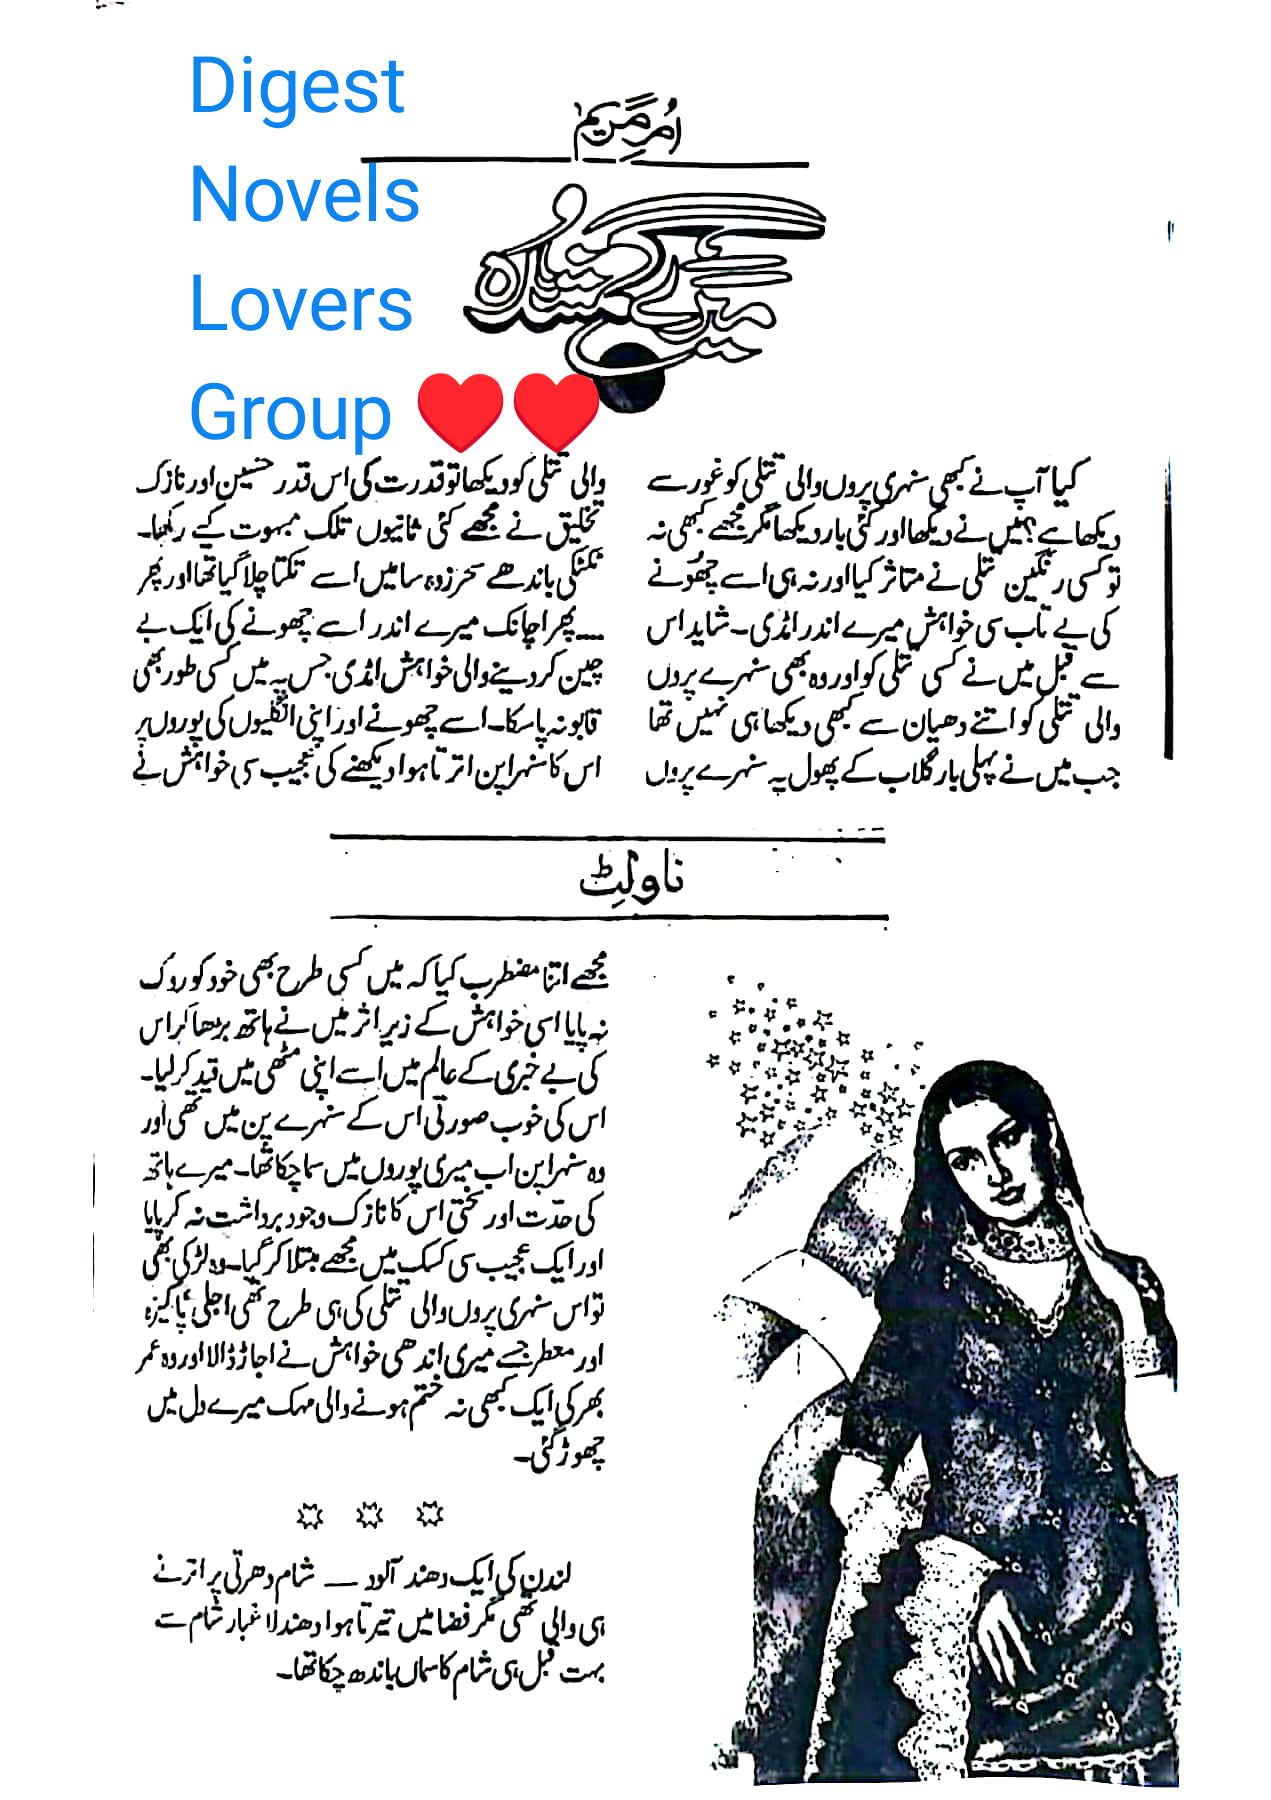 Digest
Novels
Lovers
Group ❤️❤️
اُمِّ مریم
کیا آپ نے کبھی سنہری پروں والی تتلی کو غور سے
دیکھا ہے؟ میں نے دیکھا اور کئی بار دیکھا مگر مجھے کبھی نہ
تو کسی رنگین تتلی نے متاثر کیا اور نہ ہی اسے چھُونے
کی بے تاب سی خواہش میرے اندر امڈی۔ شاید اس
سے قبل میں نے کسی تتلی کو اور وہ بھی سنہرے پروں
والی تتلی کو اتنے دھیان سے کبھی دیکھا ہی نہیں تھا
جب میں نے پہلی بار گلاب کے پھول پہ سنہرے پروں
والی تتلی کو دیکھا تو قدرت کی اس قدر حسین اور نازک
تخلیق نے مجھے کئی ثانیوں تلک مبہوت کیے رکھا۔
ٹکٹکی باندھے سحر زدہ سا میں اسے تکتا چلا گیا تھا اور پھر
.... پھر اچانک میرے اندر اسے چھونے کی ایک بے
چین کر دینے والی خواہش امڈی جس پہ میں کسی طور بھی
قابو نہ پا سکا۔ اسے چھونے اور اپنی انگلیوں کی پوروں پر
اس کا سنہرا پن اترتا ہوا دیکھنے کی عجیب سی خواہش نے
ناولٹ
مجھے اتنا مضطرب کیا کہ میں کسی طرح بھی خود کو روک
نہ پایا اسی خواہش کے زیر اثر میں نے ہاتھ بڑھا کر اس
کی بے خبری کے عالم میں اسے اپنی مٹھی میں قید کر لیا۔
اس کی خوب صورتی اس کے سنہرے پن میں تھی اور
وہ سنہرا پن اب میری پوروں میں سما چکا تھا۔ میرے ہاتھ
کی حدّت اور سختی اس کا نازک وجود برداشت نہ کر پایا
اور ایک عجیب سی کسک میں مجھے مبتلا کر گیا۔ وہ لڑکی بھی
تو اس سنہری پروں والی تتلی کی ہی طرح تھی اجلی پاکیزہ
اور معطر جسے میری اندھی خواہش نے اجاڑ ڈالا اور وہ عمر
بھر کی ایک کبھی نہ ختم ہونے والی مہک میرے دل میں
چھوڑ گئی۔
لندن کی ایک دھند آلود — شام دھرتی پر اترنے
ہی والی تھی مگر فضا میں تیرتا ہوا دھندلا غبار شام سے
بہت قبل ہی شام کا سماں باندھ چکا تھا۔